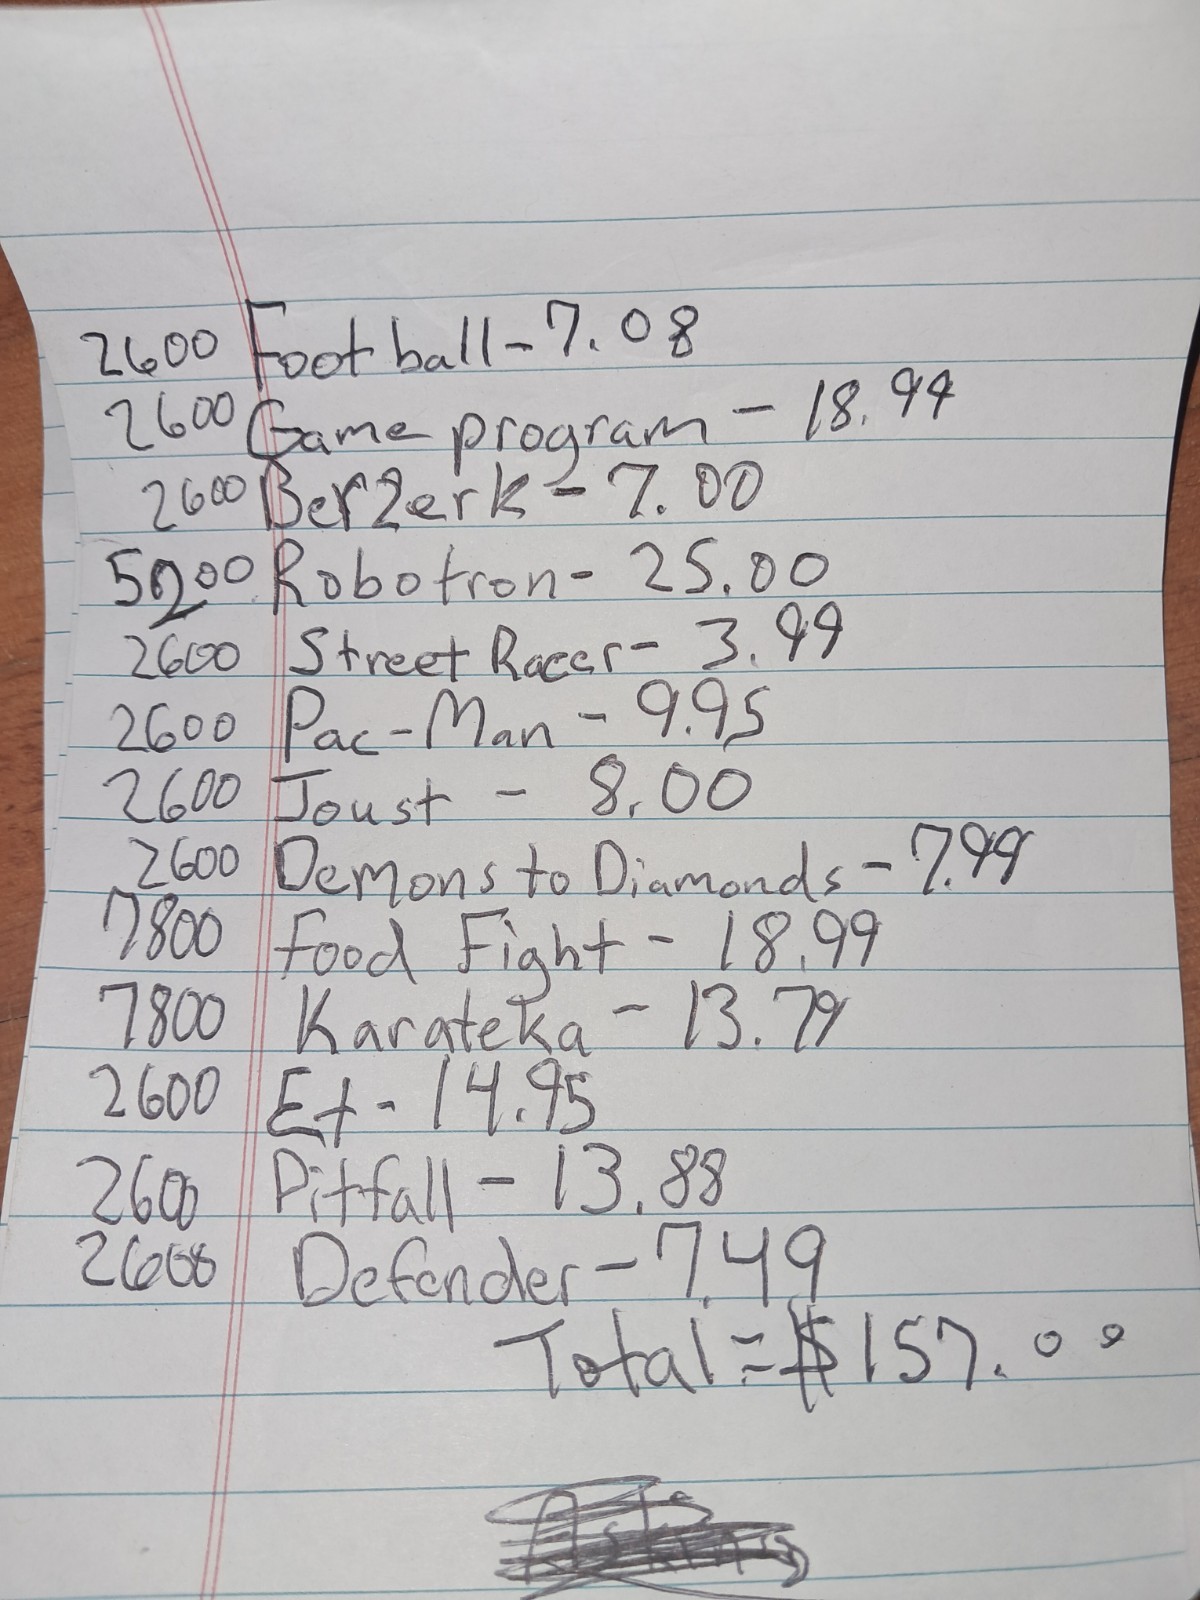 2600 Football - 7.08
2600 Game program - 18.99
2600 Berzerk - 7.00
5200 Robotron - 25.00
2600 Street Racer - 3.99
2600 Pac-Man - 9.95
2600 Joust - 8.00
2600 Demons to Diamonds - 7.99
7800 Food Fight - 18.99
7800 Karateka - 13.79
2600 Et - 14.95
2600 Pitfall - 13.88
2600 Defender - 7.49
Total = $157.00